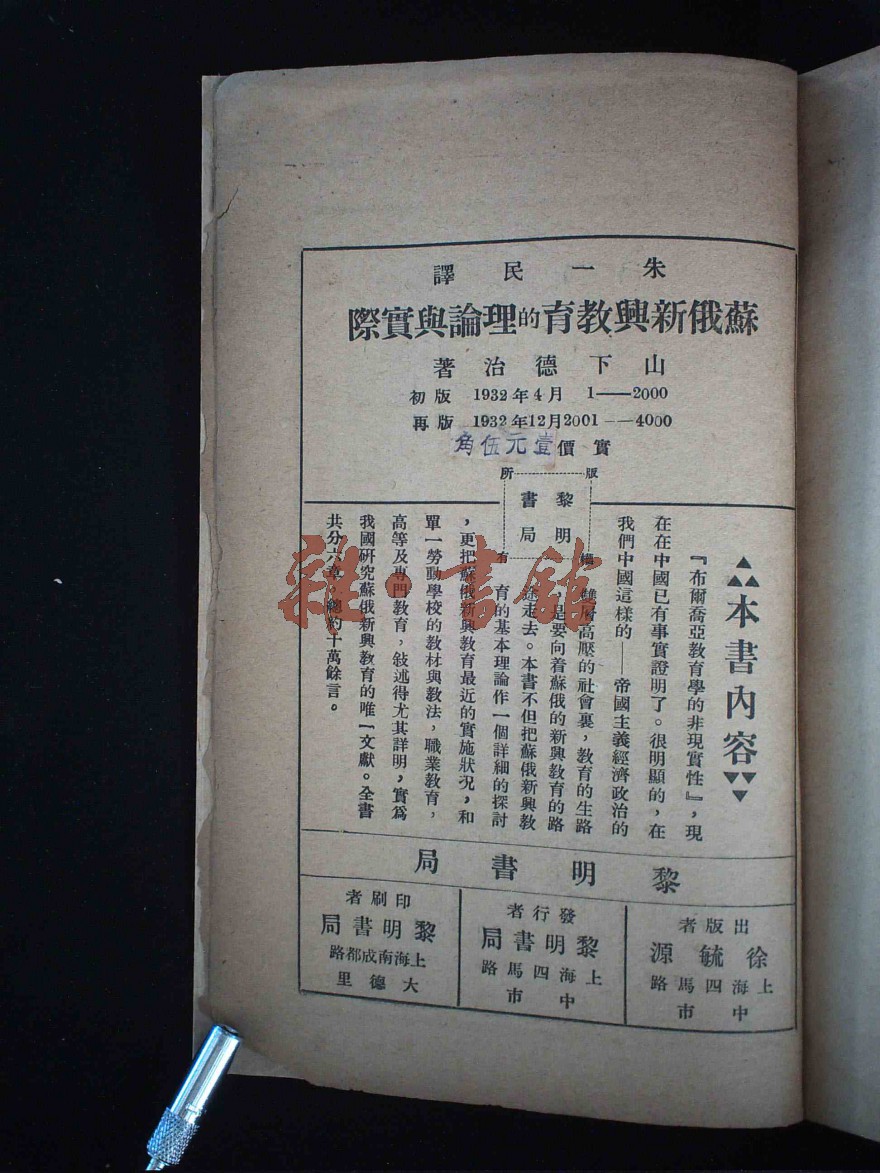 朱一民譯
蘇俄新興教育的理論與實際
山下德治著
初版 1932年4月 1——2000
再版 1932年12月2001——4000
實價壹元伍角
版權所有
黎明
書局
本書內容
『布爾喬亞教育學的非現實性』，現
在在中國已有事實證明了。很明顯的，在
我們中國這樣的——帝國主義經濟政治的
雙層高壓的社會裏，教育的生路
是要向着蘇俄的新興教育的路
途走去。本書不但把蘇俄新興教
育的基本理論作一個詳細的探討
，更把蘇俄新興教育最近的實施狀况，和
單一勞動學校的教材與教法，職業教育，
高等及專門教育，敍述得尤其詳明，實爲
我國研究蘇俄新興教育的唯一文獻。全書
共分六章，總約十萬餘言。
黎明書局
出版者
徐毓源
上海四馬路
中市
發行者
黎明書局
上海四馬路
中市
印刷者
黎明書局
上海南成都路
大德里
雜·書館